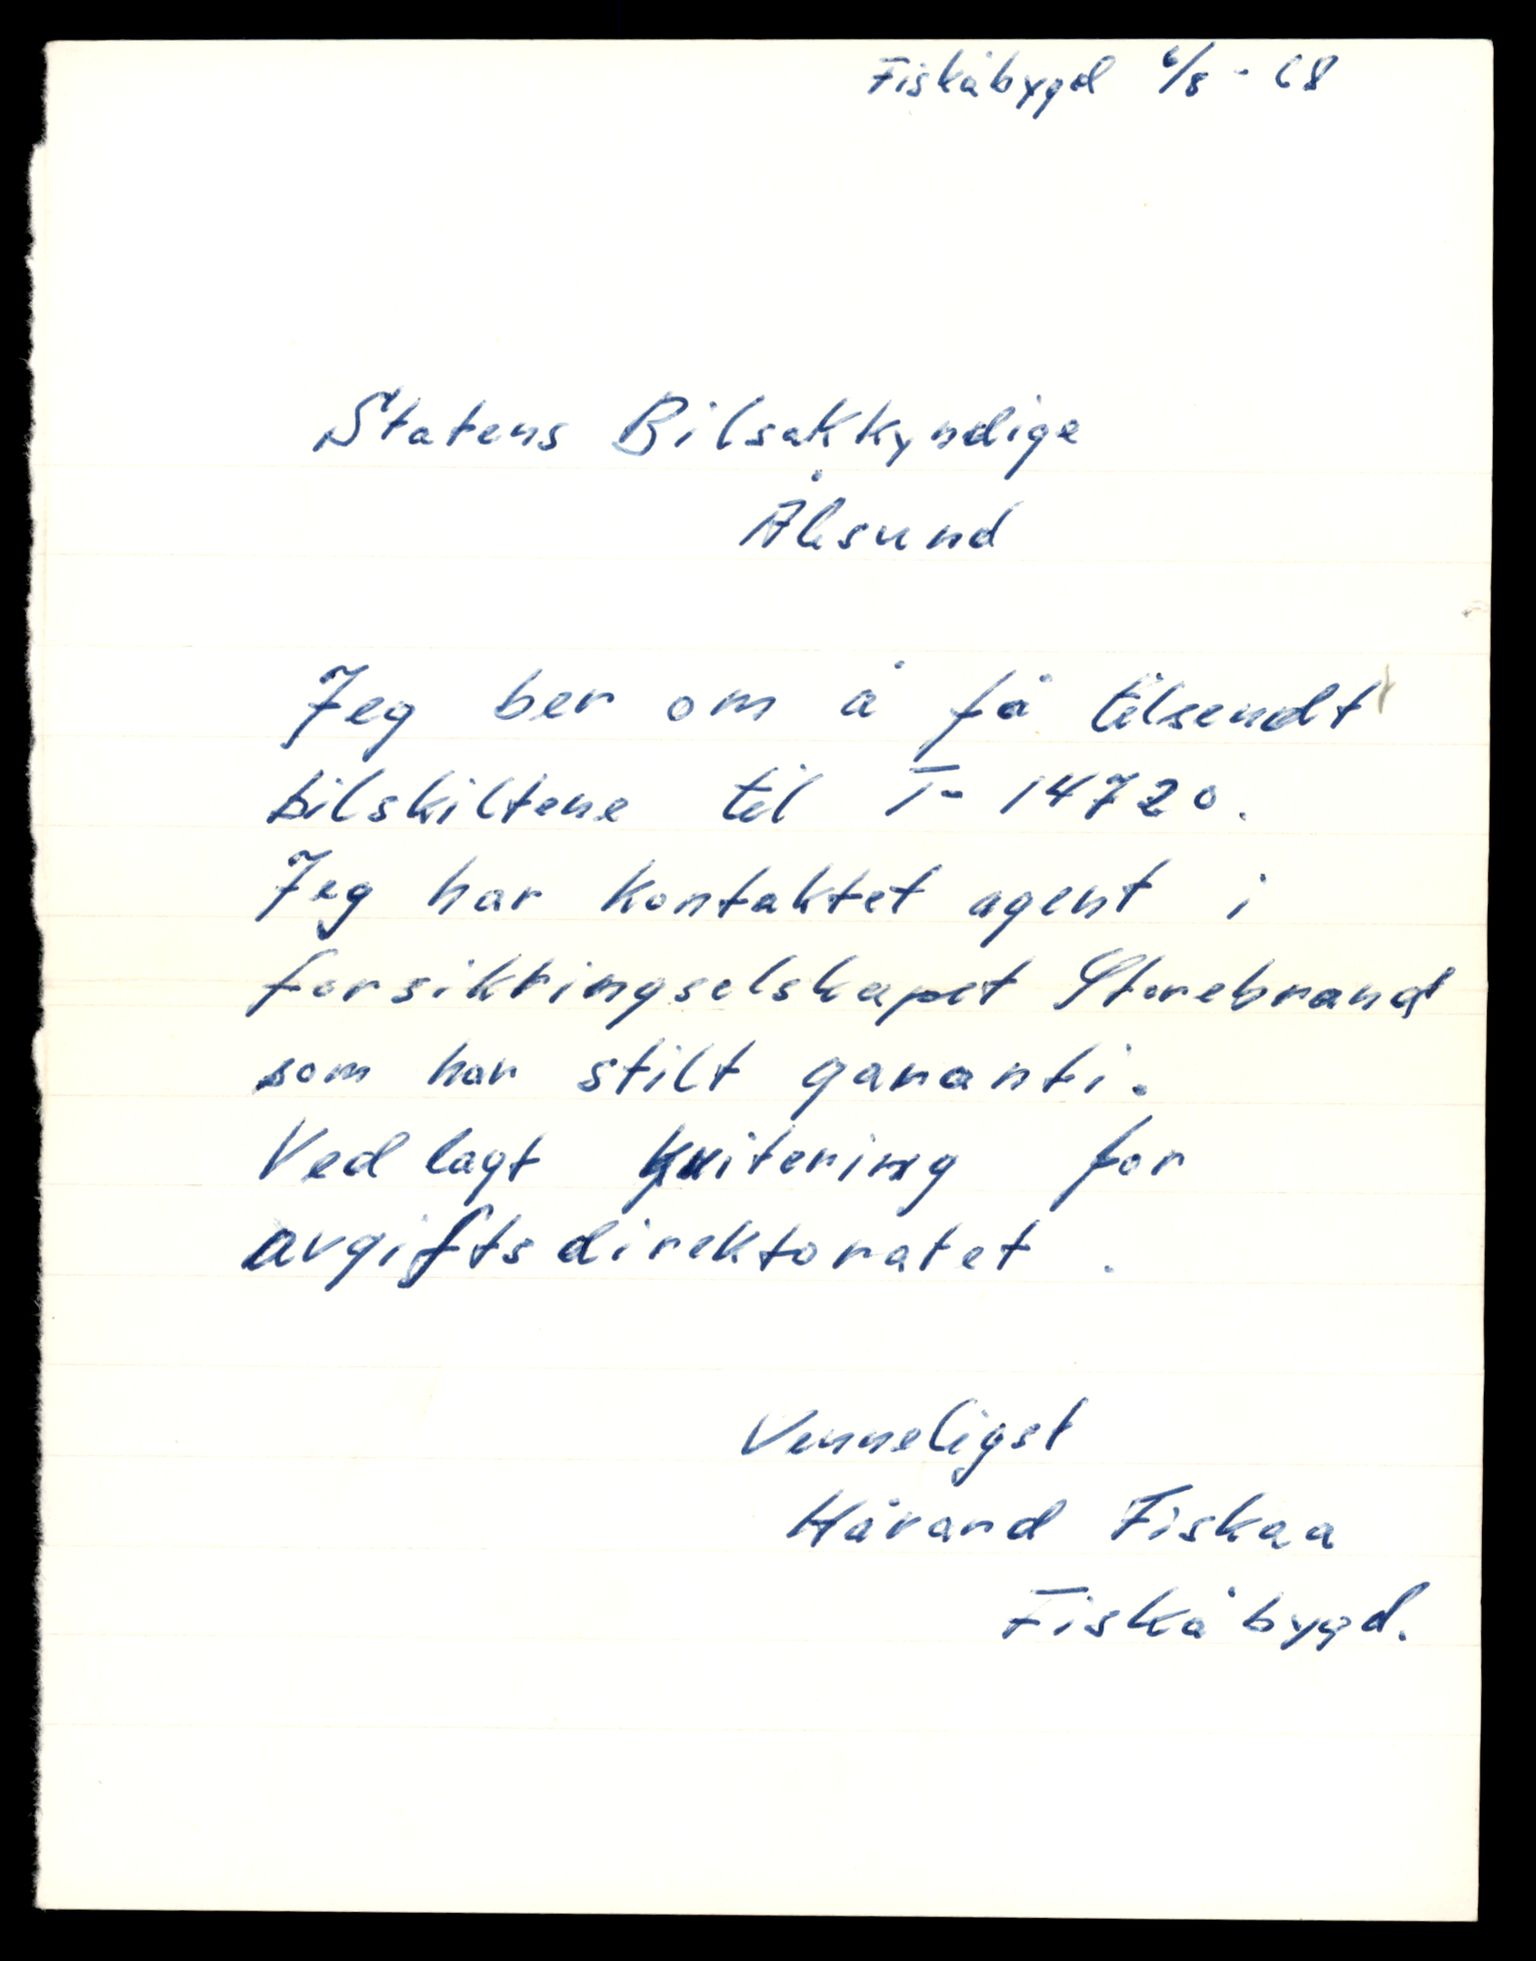 Fiskåbygd 6/8 - 68
Statens Bilsakkyndige
Ålesund
Jeg ber om å få tilsendt
bilskiltene til T- 14720.
Jeg har kontaktet agent i
forsikringselskapet Storebrand
som har stilt garanti.
Vedlagt kvitering for
avgiftsdirektoratet.
Venneligst
Håvard Fiskaa
Fiskåbygd.